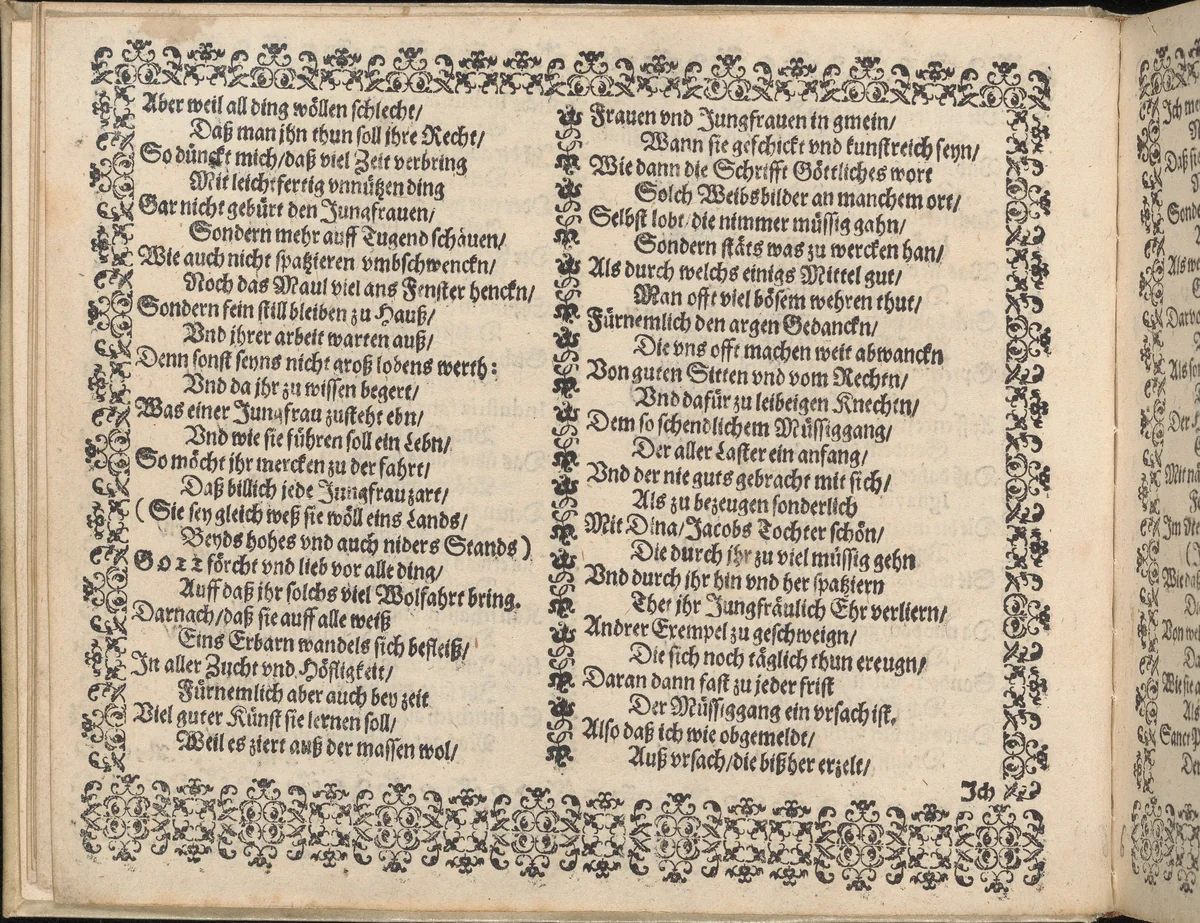 Aber weil all ding wöllen schlecht/
Daß man jhn thun soll jhre Recht/
So dünckt mich/daß viel Zeit verbring
Mit leichtfertig vnnützen ding
Gar nicht gebürt den Jungfrauen/
Sondern mehr auff Tugend schauen/
Wie auch nicht spatzieren vmbschwenckn/
Noch das Maul viel ans Fenster henckn/
Sondern fein still bleiben zu Hauß/
Vnd jhrer arbeit warten auß/
Denn sonst seyns nicht groß lobens werth:
Vnd da jhr zu wissen begert/
Was einer Jungfrau zusteht ebn/
Vnd wie sie führen soll ein Lebn/
So möcht jhr mercken zu der fahrt/
Daß billich jede Jungfrau zart/
(Sie sey gleich weß sie wöll eins Lands/
Beyds hohes vnd auch niders Stands)
GOTT förcht vnd lieb vor alle ding/
Auff daß jhr solchs viel Wolfahrt bring.
Darnach/daß sie auff alle weiß
Eins Erbarn wandels sich befleiß/
In aller Zucht vnd Höfligkeit/
Fürnemlich aber auch bey zeit
Viel guter Künst sie lernen soll/
Weil es ziert auß der massen wol/
Frauen vnd Jungfrauen in gmein/
Wann sie geschickt vnd kunstreich seyn/
Wie dann die Schrifft Göttliches wort
Solch Weibsbilder an manchem ort/
Selbst lobt/die nimmer müssig gahn/
Sondern stäts was zu wercken han/
Als durch welchs einigs Mittel gut/
Man offt viel bösem wehren thut/
Fürnemlich den argen Gedanckn/
Die vns offt machen weit abwanckn
Von guten Sitten vnd vom Rechtn/
Vnd dafür zu leibeigen Knechtn/
Dem so schendlichem Müssiggang/
Der aller Laster ein anfang/
Vnd der nie guts gebracht mit sich/
Als zu bezeugen sonderlich
Mit Dina/Jacobs Tochter schön/
Die durch jhr zu viel müssig gehn
Vnd durch jhr hin vnd her spatziern
Thet jhr Jungfräulich Ehr verliern/
Andrer Exempel zu geschweign/
Die sich noch täglich thun ereugn/
Daran dann fast zu jeder frist
Der Müssiggang ein vrsach ist.
Also daß ich wie obgemeldt/
Auß vrsach/die bißher erzelt/
Ich